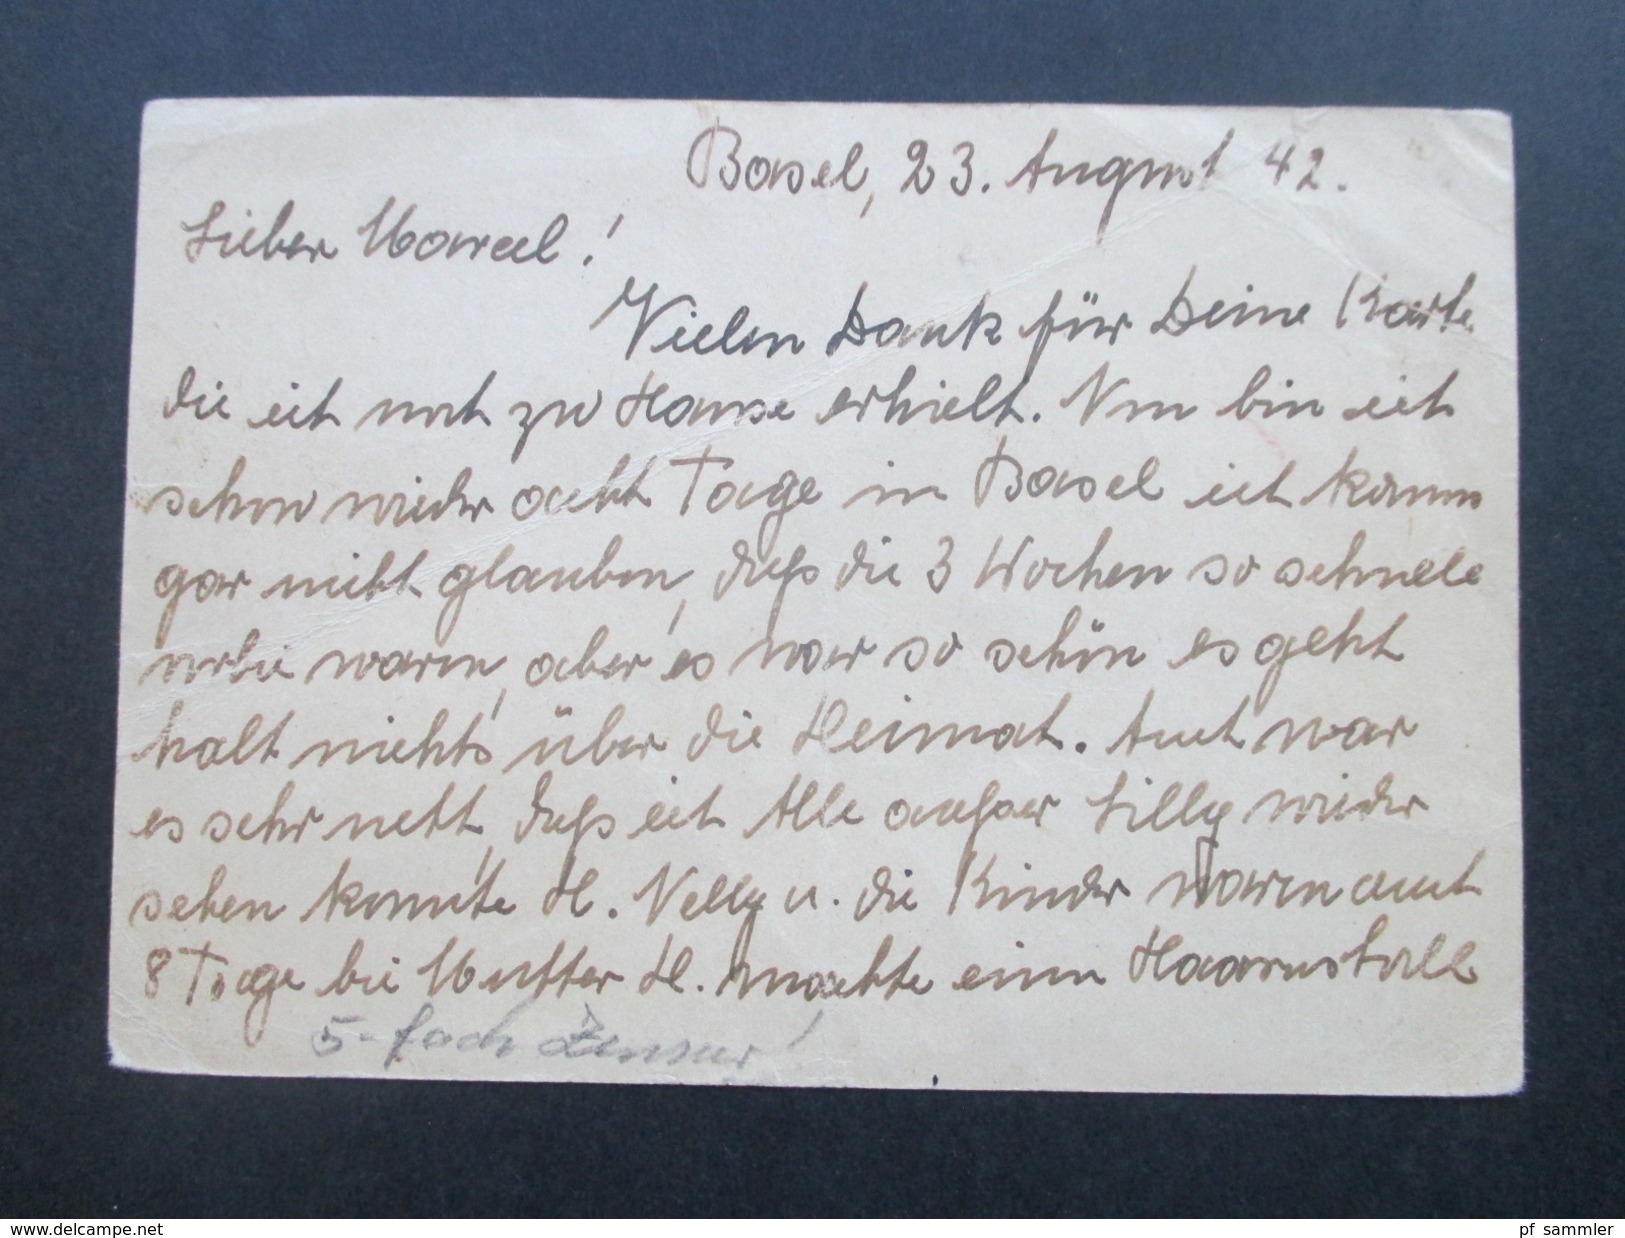 Basel, 23. August 42.
Lieber Marcel!
Vielen Dank für Deine Karte
die ich noch zu Hause erhielt. Nun bin ich
schon wieder acht Tage in Basel ich kann
gar nicht glauben, daß die 3 Wochen so schnell
vorbei waren, aber es war so schön es geht
halt nichts über die Heimat. Auch war
es sehr nett, daß ich Alle außer Lilly wieder
sehen konnte H. Nelly u. die Kinder waren auch
8 Tage bei Mutter H. machte einen
5-fach Zensur!
delcampe.net
pf_sammler